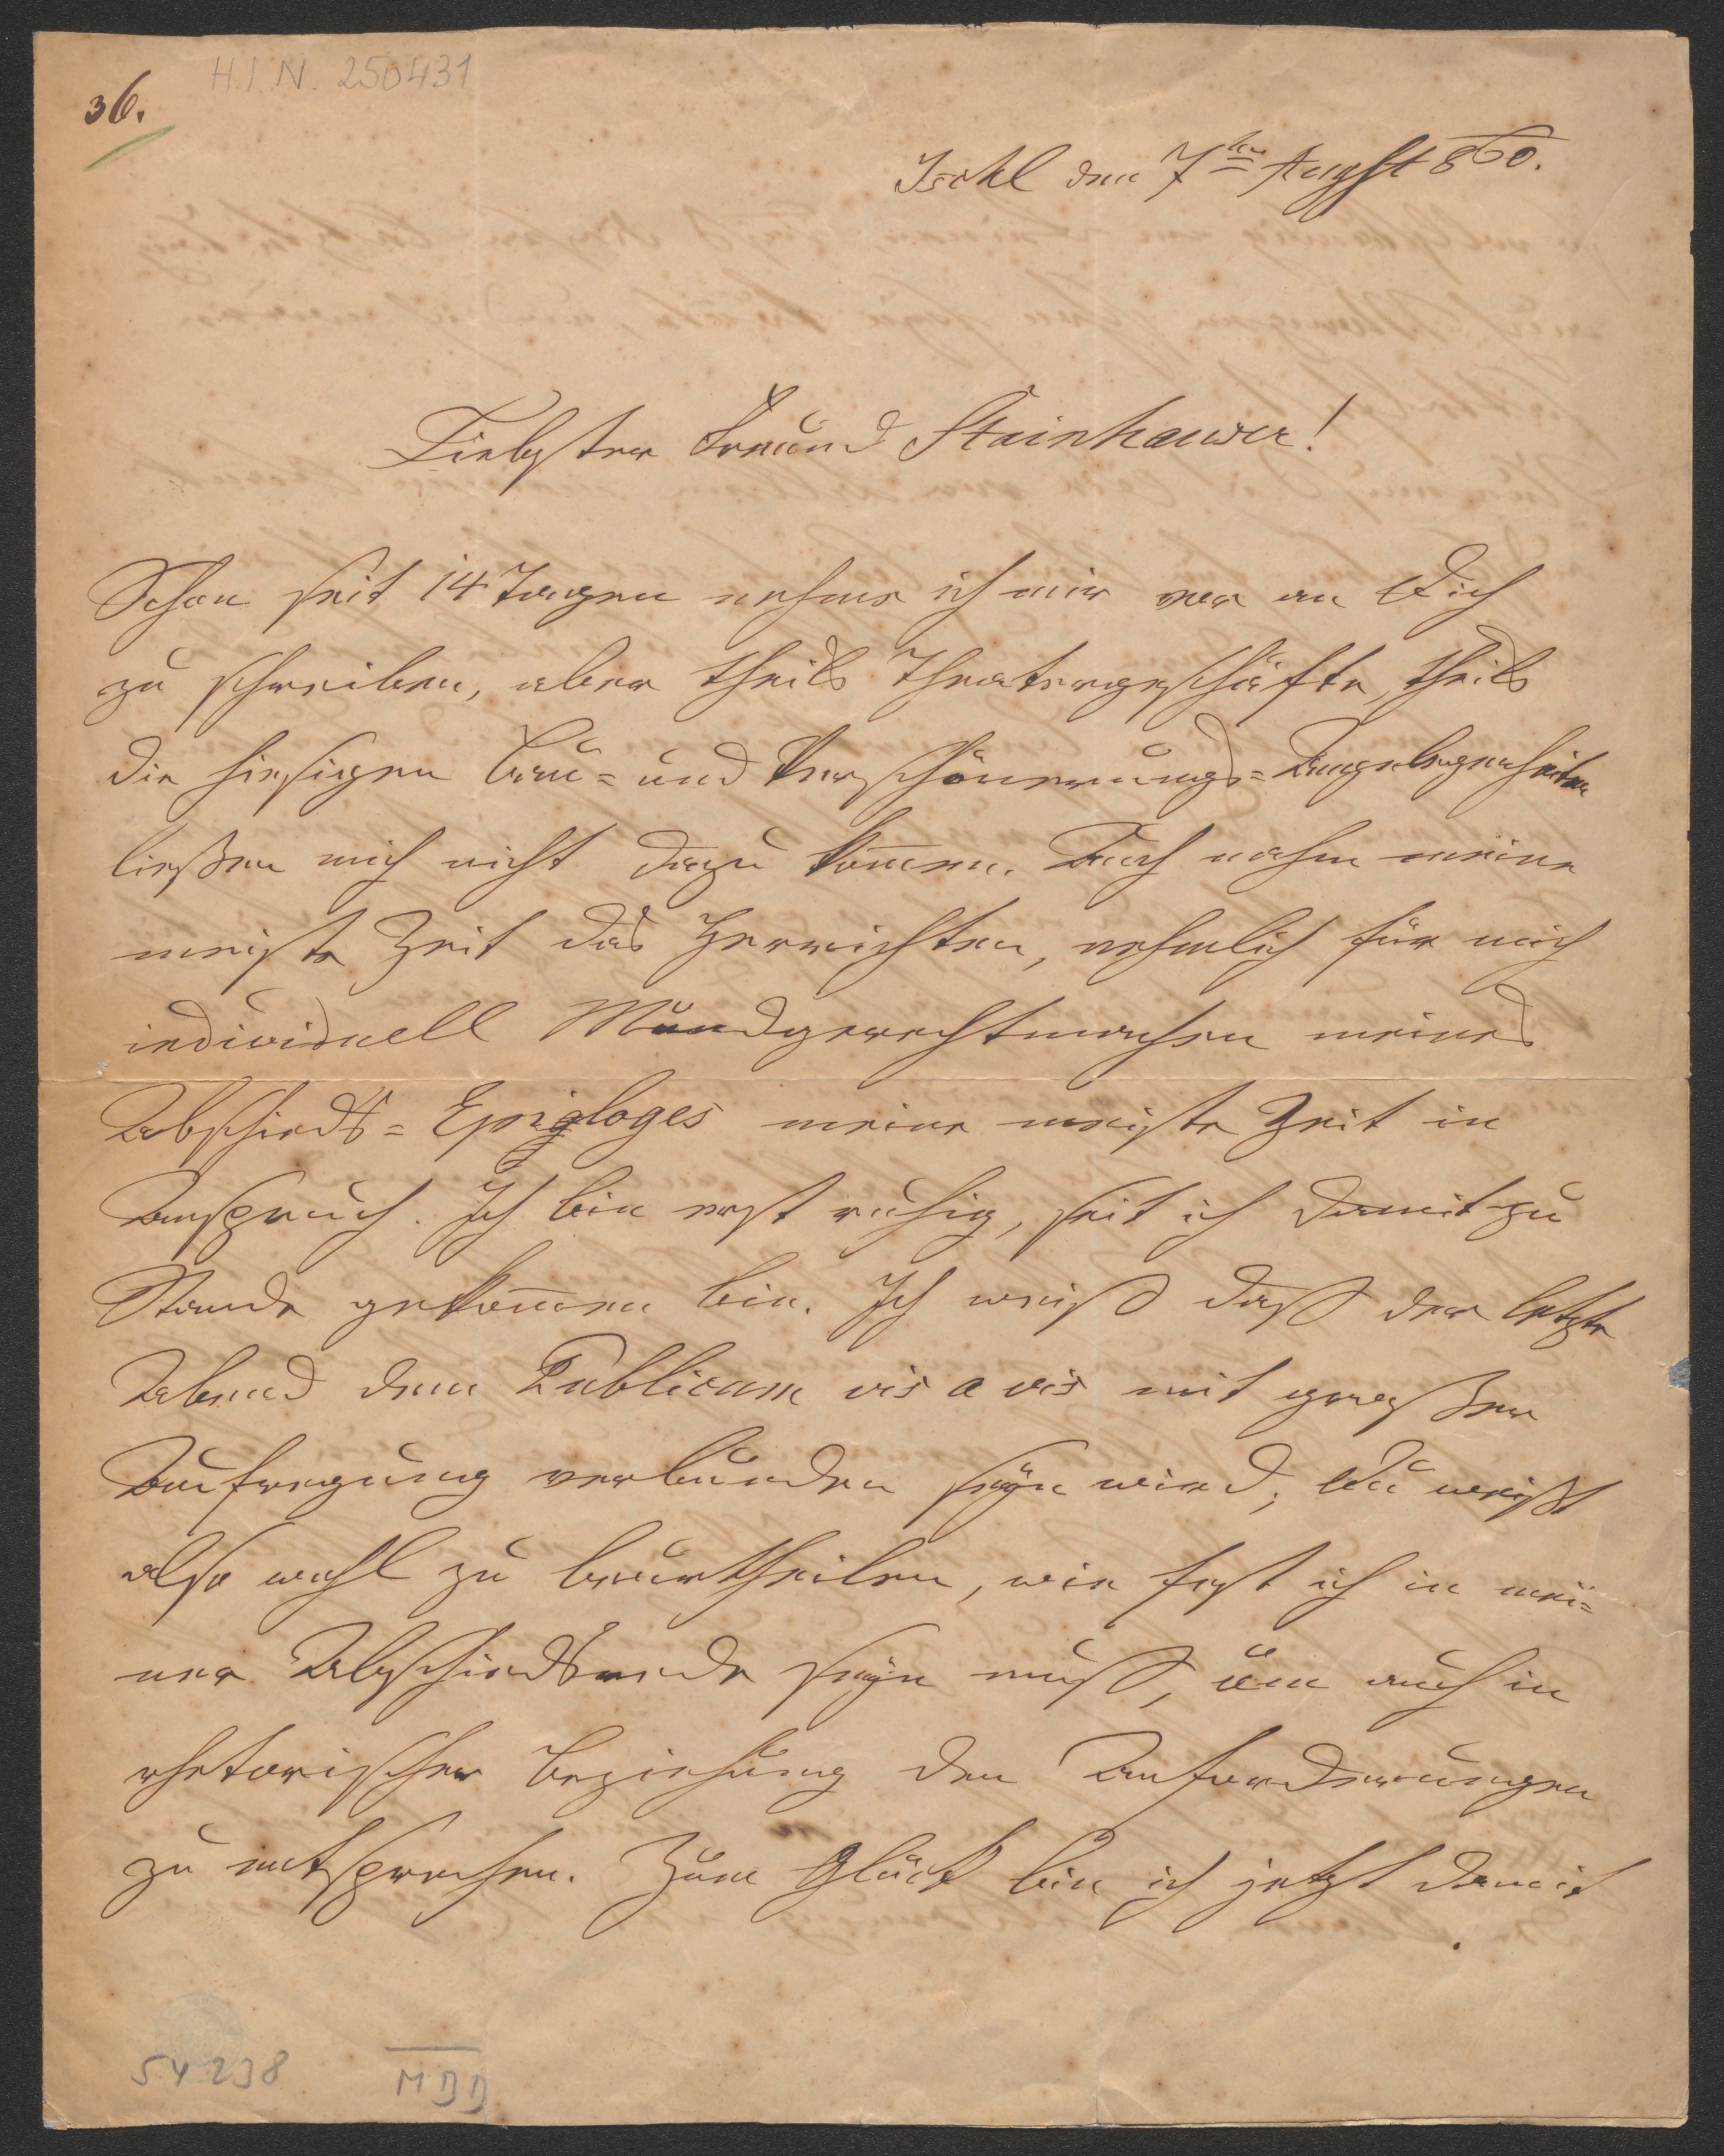 H.I.N. 250431
36.
Ischl den 7ten August 860.
Liebster Freund Stainhauser!
Schon seit 14 Tagen nehme ich mir vor an Dich
zu schreiben, aber theils Theatergeschäfte, theils
die hiesigen Bau= und Verschönerungs=Angelegenheiten
ließen mich nicht dazu kom̄en. Auch nahm meine
meiste Zeit das Herrichten, nehmlich für mich
individuell Mundgerechtmachen meines
Abschieds=Epigloges meine meiste Zeit in
Anspruch. Ich bin erst ruhig, seit ich damit zu
Stande gekom̄en bin. Ich weiß daß der letzte
Abend dem Publicum vis a vis mit großer
Aufregung verbunden seyn wird; Du weißt
also wohl zu beurtheilen, wie fest ich in mei=
ner Abschiedsrede seyn muß, um auch in
rhetorischer Beziehung den Anforderungen
zu entsprechen. Zum Glück bin ich jetzt damit
54238
MBD